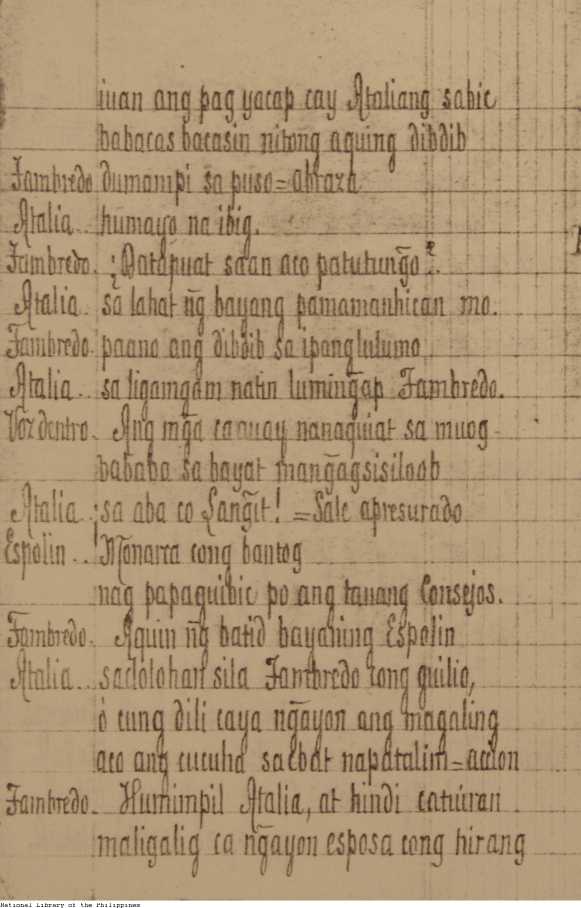 iuan ang pag yacap cay Ataliang sabic
babacas bacasin nitong aquing dibdib
Fambredo dumampi sa puso=abraza
Atalia.. humayo na ibig.
Fambredo. ¿Datapuat saan aco patutungo?.
Atalia.. sa lahat ng̃ bayang pamamanhican mo.
Fambredo. paano ang dibdib sa ipanglulumo
Atalia.. sa ligamgam natin luming̃ap Fambredo.
Voz dentro. Ang mg̃a caauay nanaquiat sa muog
bababa sa bayat mang̃agsisiloob
Atalia.. ¡sa aba co Lang̃it! =Sale apresurado
Espolin... Monarca cong bantog
nag papaquibic po ang tanang Consejos.
Fambredo. Aquin ng̃ batid bayaning Espolin
Atalia.. sadolohan sila Fambredo cong guilio,
ó cung dili caya ng̃ayon ang magaling
aco ang cucuha sa cbat napatalim=accion
Fambredo. Humimpil Atalia, at hindi catuiran
maligalig ca ng̃ayon esposa cong hirang
National Library of the Philippines